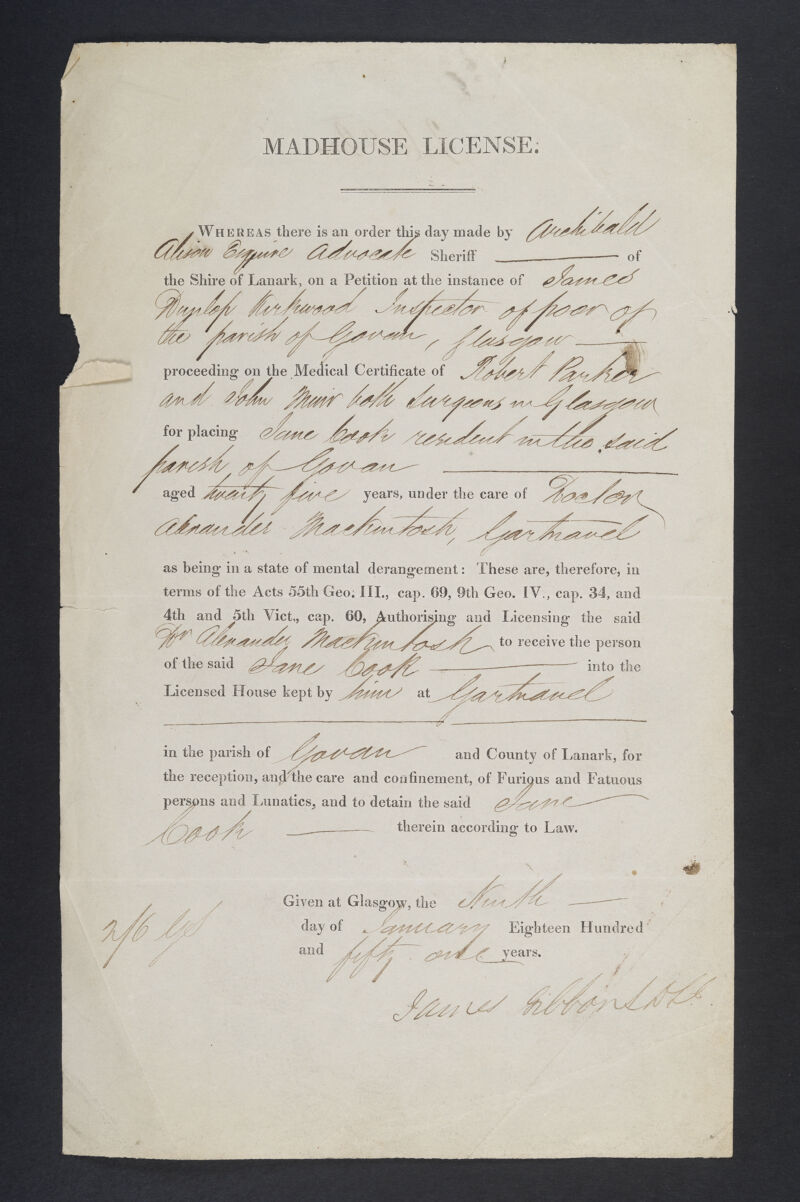 MADHOUSE LICENSE.
WHEREAS there is an order this day made by Archibald
Alison Esquire Advocate Sheriff of
the Shire of Lanark, on a Petition at the instance of James
Dunlop Kirkwood Inspector of poor of
the parish of Govan, Glasgow
proceeding on the Medical Certificate of Robert Parker
and John Muir both Surgeons in Glasgow
for placing Jane Cook resident in the said
parish of Govan
aged twenty five years, under the care of Doctor
Alexander Mackintosh, Gartnavel
as being in a state of mental derangement: These are, therefore, in
terms of the Acts 55th Geo. III., cap. 69, 9th Geo. IV., cap. 34, and
4th and 5th Vict., cap. 60, Authorising and Licensing the said
Dr Alexander Mackintosh to receive the person
of the said Jane Cook into the
Licensed House kept by him at Gartnavel
in the parish of Govan and County of Lanark, for
the reception, and the care and confinement, of Furious and Fatuous
persons and Lunatics, and to detain the said Jane
Cook therein according to Law.
Given at Glasgow, the Ninth
day of January Eighteen Hundred
and fifty one years.
2/6
James Gibson